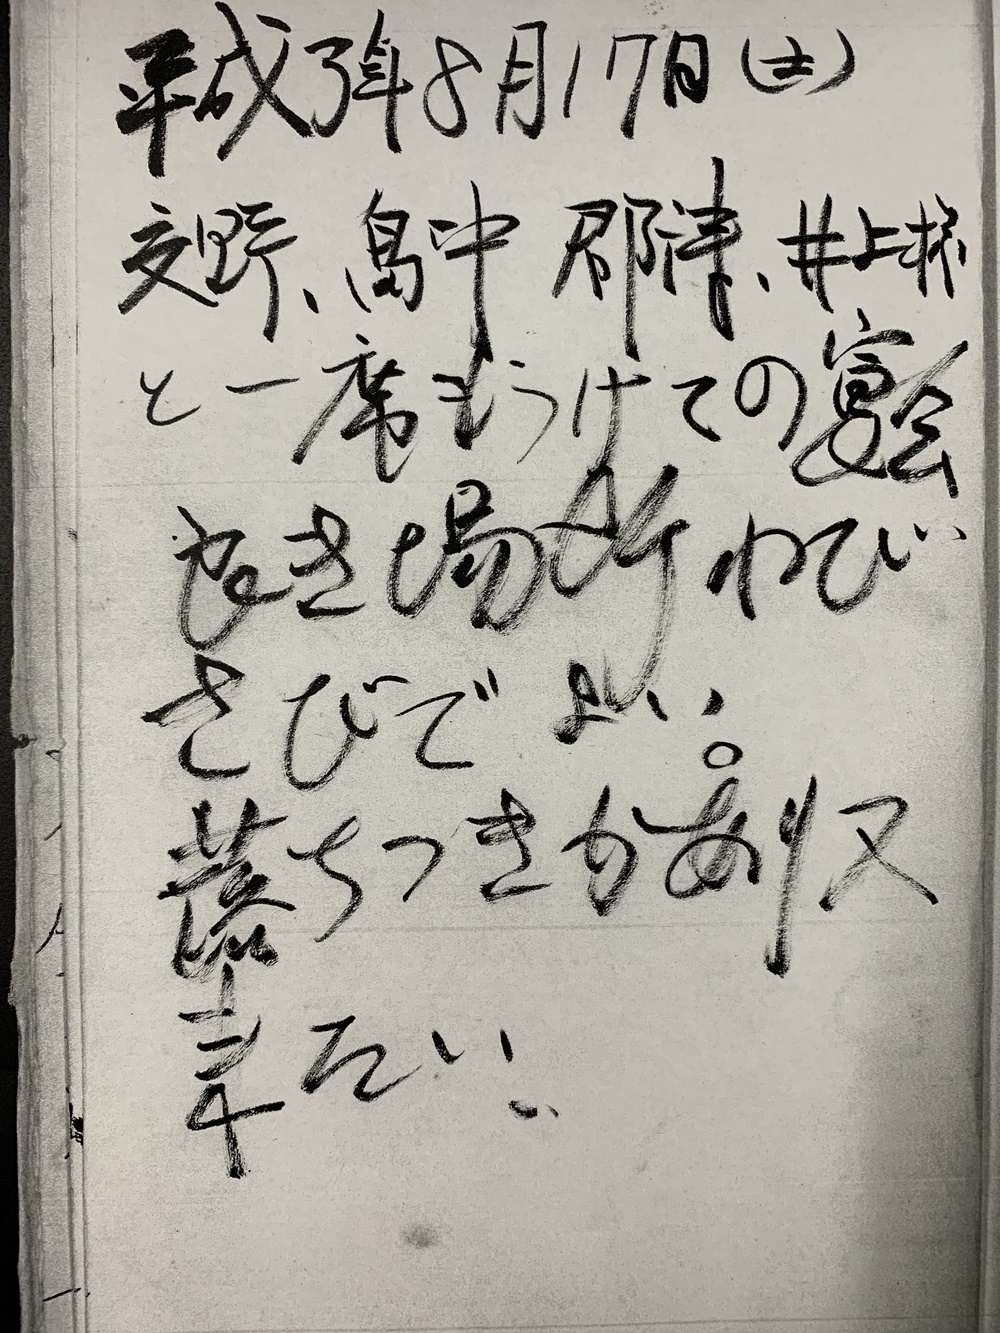 平成3年8月17日(土)
交野、畠中 郡津、井上様
と一席もうけての宴会
やき場所わび
さびでよい。
落ちつきがあり又
来たい、